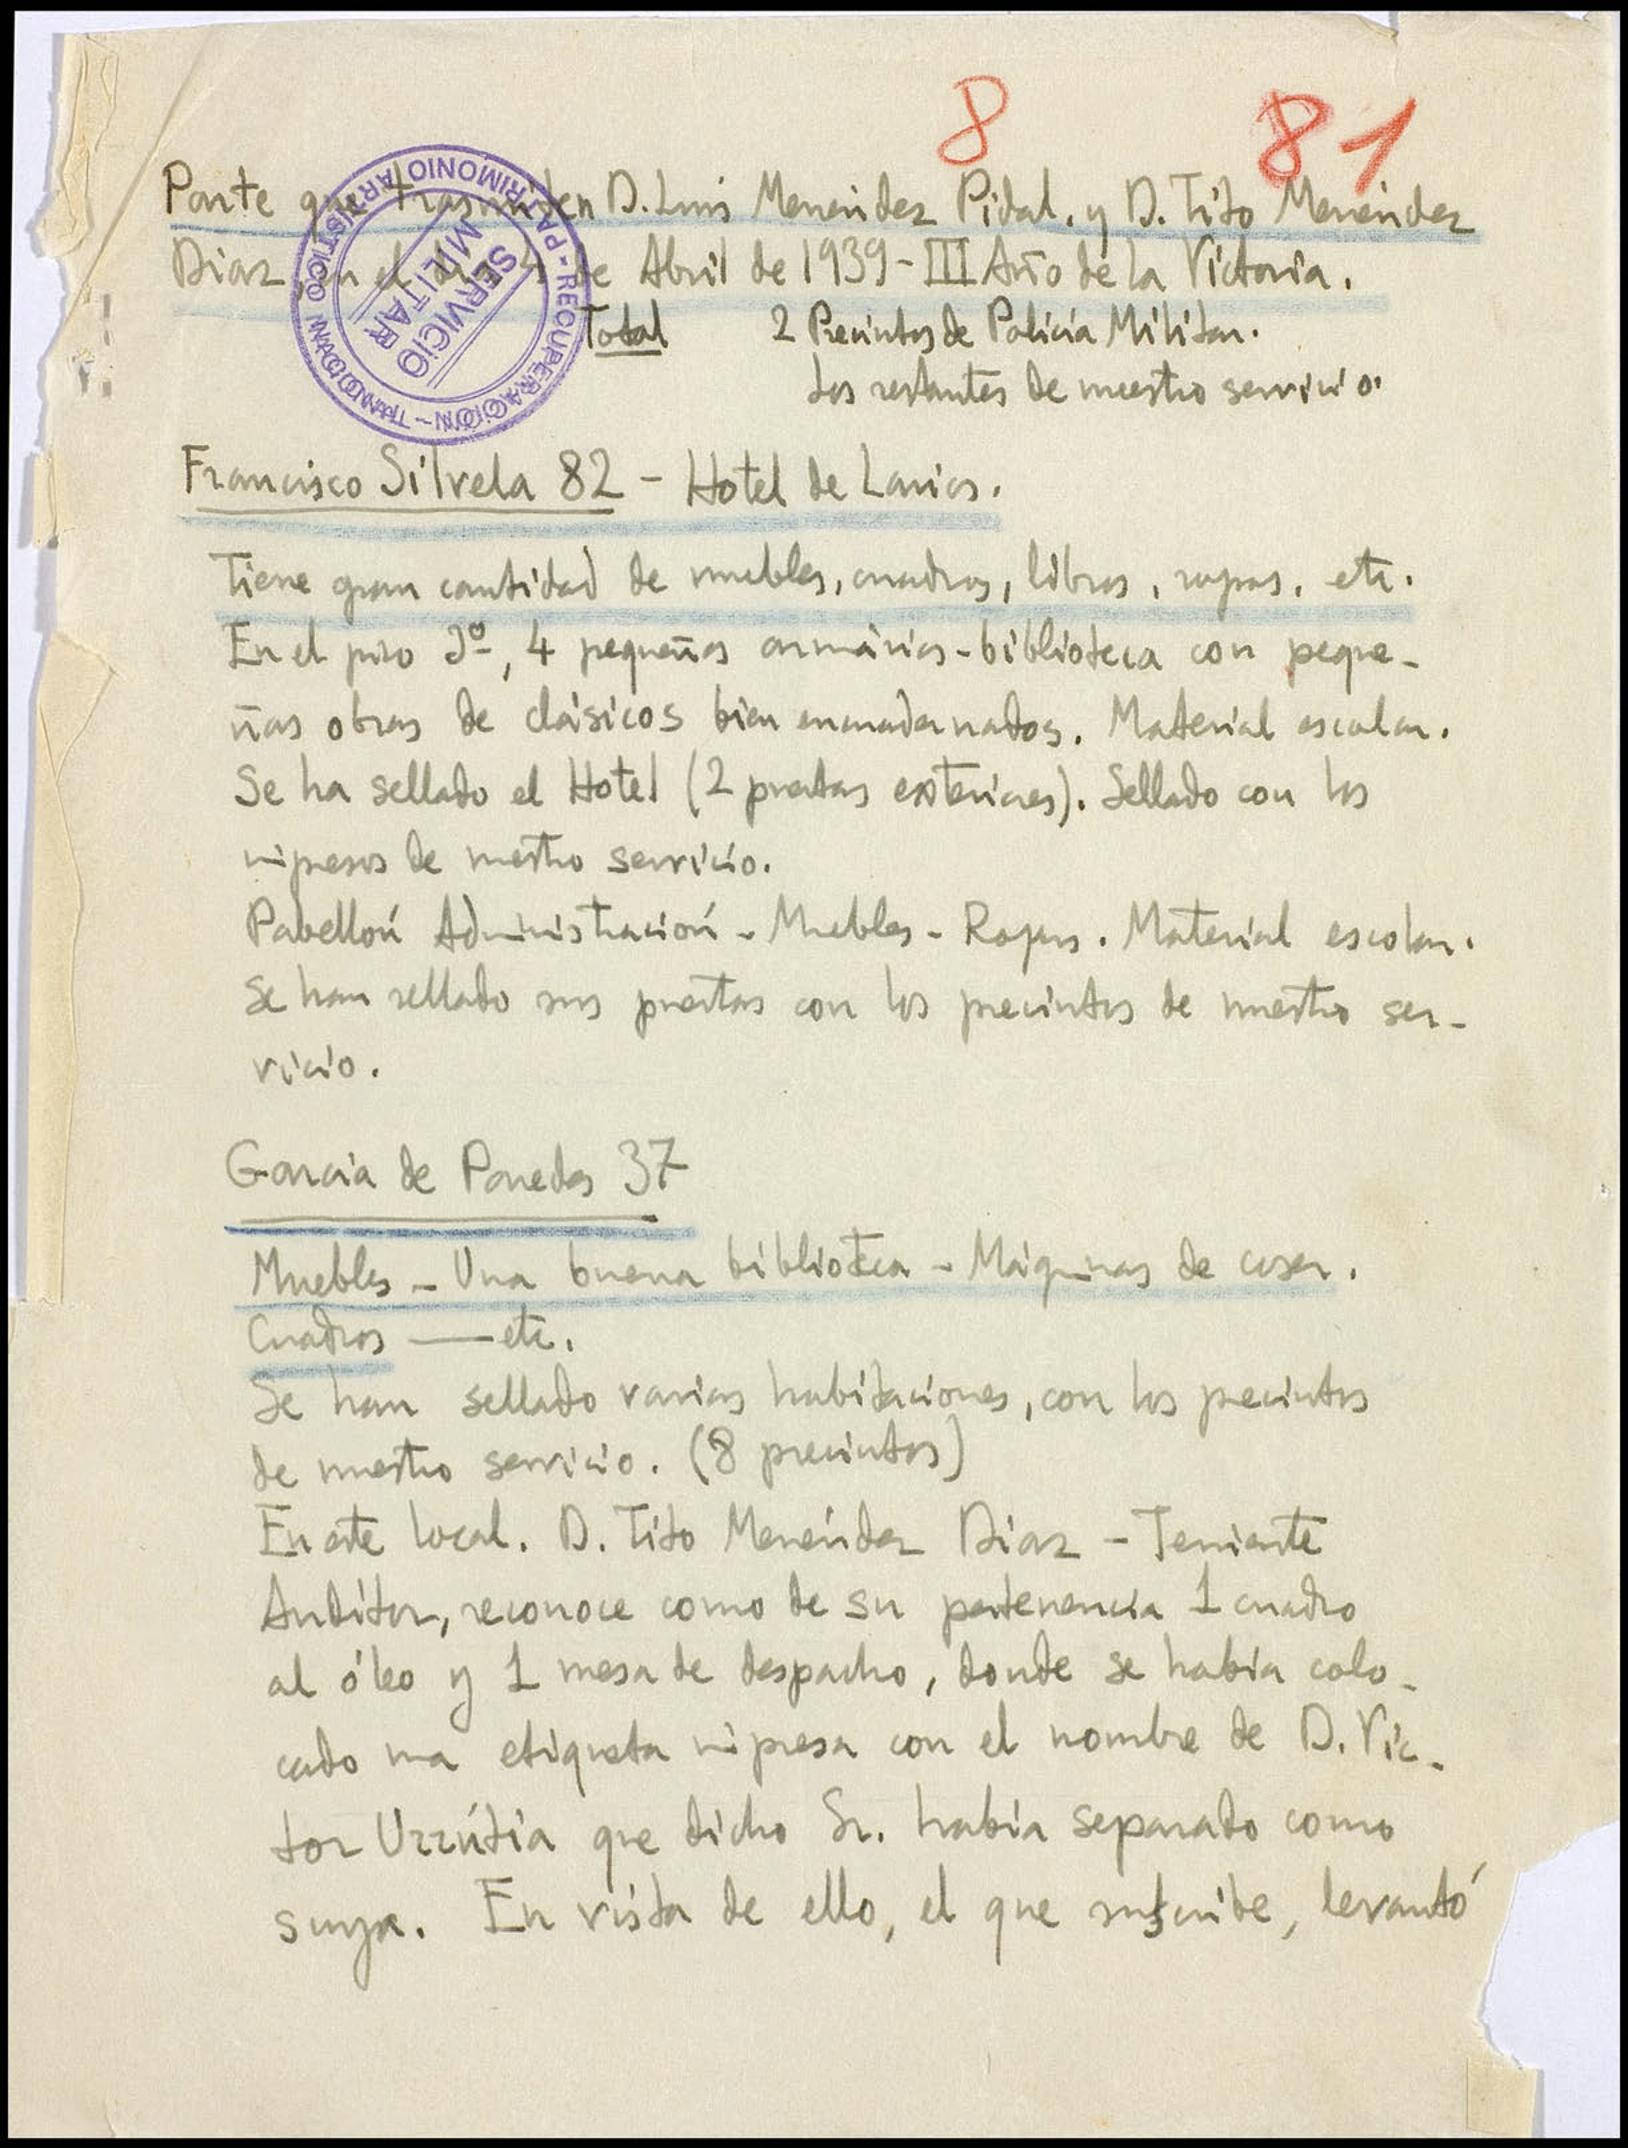 8 81
Parte que trasmiten D. Luis Menéndez Pidal. y D. Tito Menéndez
Diaz, en el dia 4 de Abril de 1939 - III Año de la Victoria.
RECUPERACIÓN - PATRIMONIO ARTISTICO NACIONAL
SERVICIO
MILITAR
Total 2 Precintos de Policía Militar.
Los restantes de nuestro servicio.
Francisco Silvela 82 - Hotel de Larios.
Tiene gran cantidad de muebles, cuadros, libros, ropas, etc.
En el piso 3º, 4 pequeños armarios-biblioteca con peque-
ñas obras de clásicos bien encuadernados. Material escolar.
Se ha sellado el Hotel (2 puertas exteriores). Sellado con los
impresos de nuestro servicio.
Pabellón Administración - Muebles - Ropas. Material escolar.
Se han sellado sus puertas con los precintos de nuestro ser-
vicio.
Garcia de Paredes 37
Muebles - Una buena biblioteca - Máquinas de coser.
Cuadros — etc.
Se han sellado varias habitaciones, con los precintos
de nuestro servicio. (8 precintos)
En este local. D. Tito Menéndez Diaz - Teniente
Auditor, reconoce como de su pertenencia 1 cuadro
al óleo y 1 mesa de despacho, donde se habia colo-
cado una etiqueta impresa con el nombre de D. Vic-
tor Urrútia que dicho Sr. habia separado como
suya. En vista de ello, el que suscribe, levantó